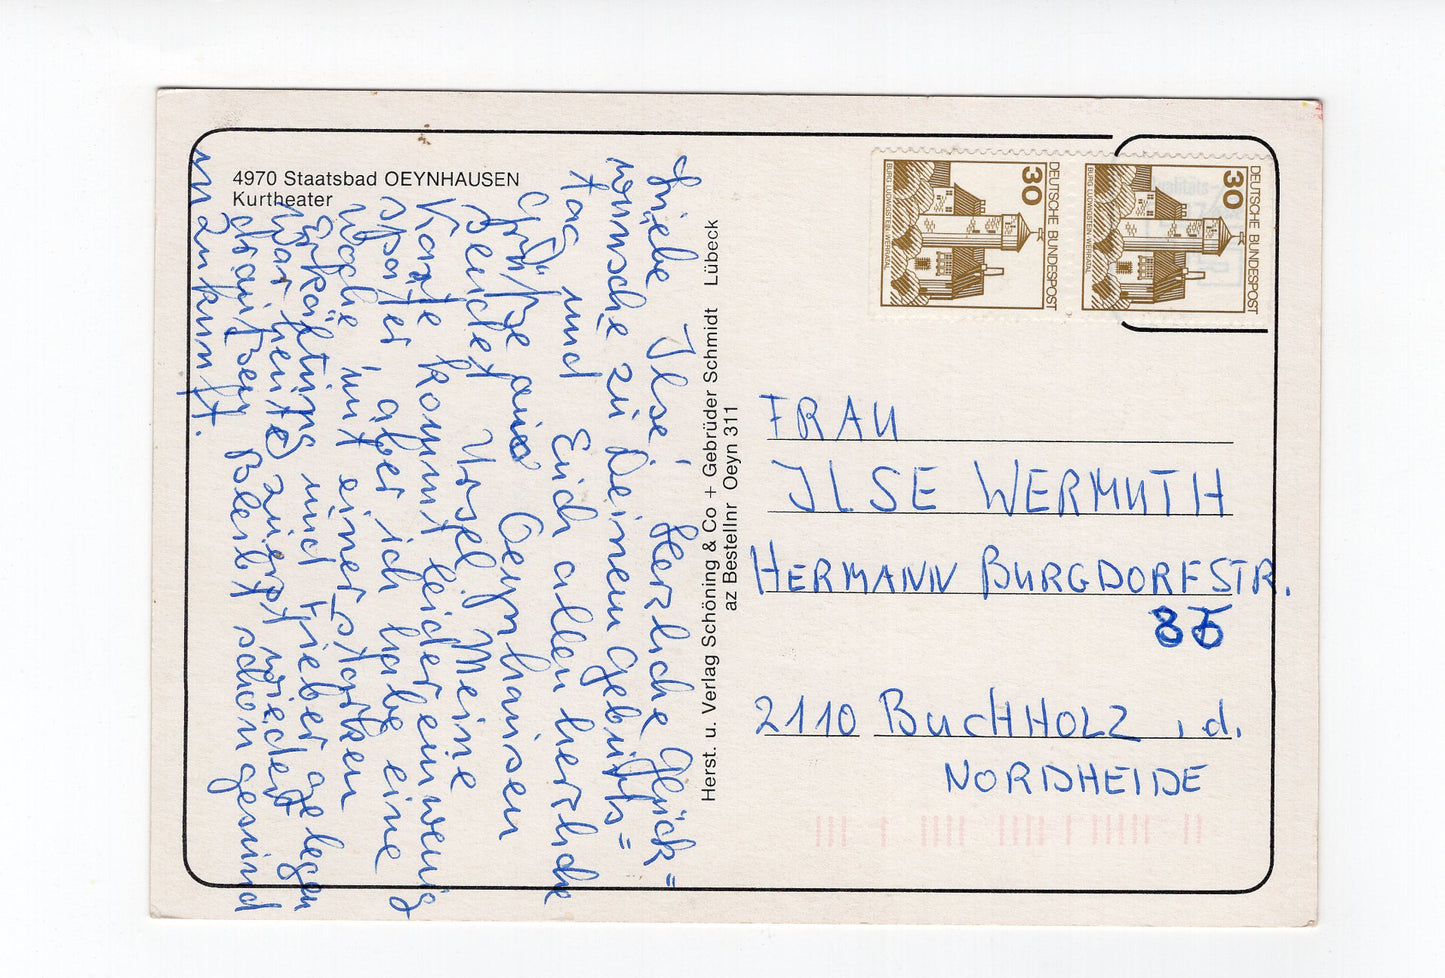 4970 Staatsbad OEYNHAUSEN
Kurtheater
Liebe Ilse! Herzliche Glück=
wünsche zu Deinem Geburts=
tag und Euch allen herzliche
Grüße aus Oeynhausen
sendet Ursel. Meine
Karte kommt leider ein wenig
später aber ich habe eine
Woche mit einer starken
Erkältung und Fieber gelegen
war heute zuerst wieder
draußen. Bleibt schön gesund
in Zukunft.
Herst. u. Verlag Schöning & Co + Gebrüder Schmidt Lübeck
az Bestellnr Oeyn 311
30
DEUTSCHE BUNDESPOST
BURG LUDWIGSTEIN WERRATAL
30
DEUTSCHE BUNDESPOST
BURG LUDWIGSTEIN WERRATAL
FRAU
ILSE WERMUTH
HERMANN BURGDORFSTR.
2110 BUCHHOLZ i. d.
NORDHEIDE